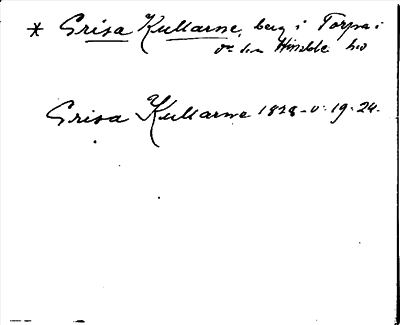 * Grisa Kullarne, berg i Torpa i
Grisa Kullarne 1828-v. 19. 24.